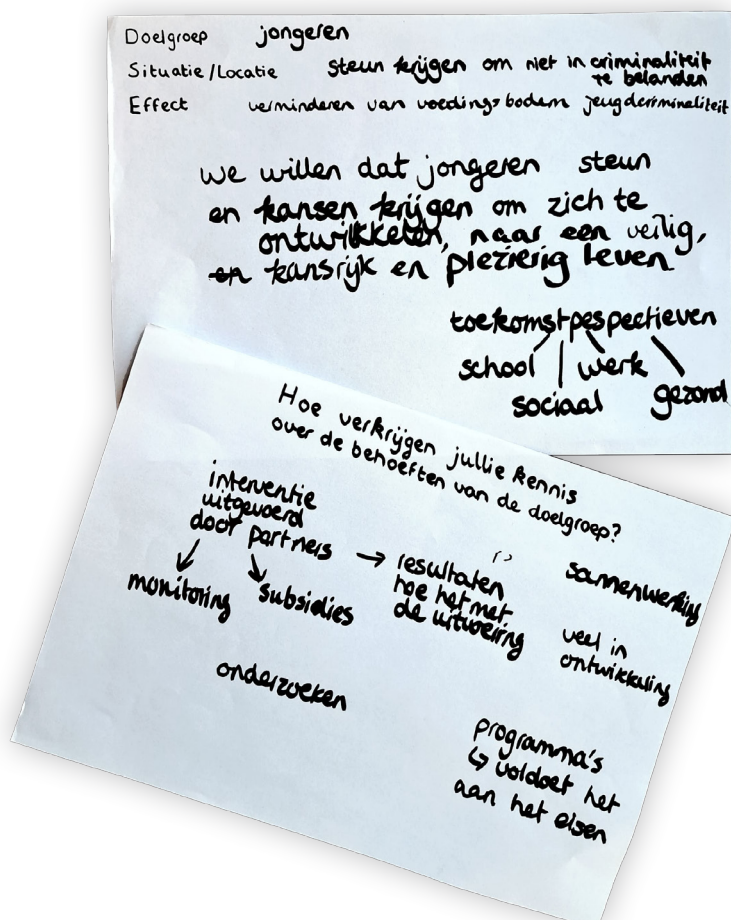 Doelgroep jongeren
Situatie/Locatie steun krijgen om niet in criminaliteit
te belanden
Effect verminderen van voedingsbodem jeugdcriminaliteit
we willen dat jongeren steun
en kansen krijgen om zich te
ontwikkelen, naar een veilig,
en kansrijk en plezierig leven
toekomstpespectieven
school werk
sociaal gezond
Hoe verkrijgen jullie kennis
over de behoeften van de doelgroep?
interventie
uitgevoerd
door partners
monitoring subsidies
→ resultaten
hoe het met
de uitvoering
samenwerking
veel in
ontwikkeling
onderzoeken
programma's
↳ voldoet het
aan het eisen